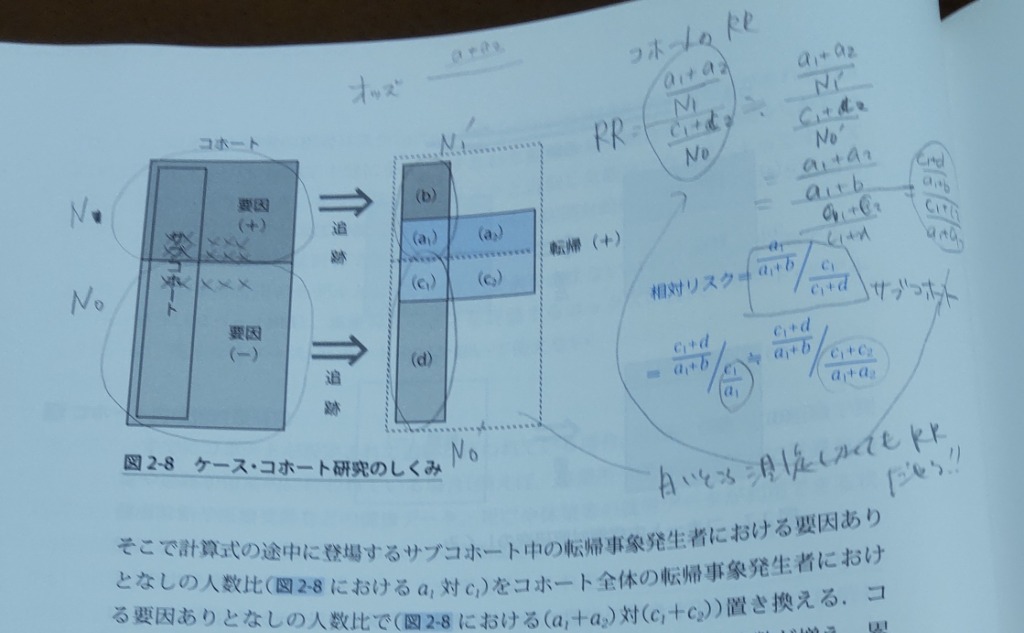 a+a₂
オッズ
コホートの RR
RR = (a₁+a₂/N₁)/(c₁+c₂/N₀) ≒ (a₁+a₂/N₁′)/(c₁+c₂/N₀′)
= (a₁+a₂/a₁+b)/(c₁+c₂/c₁+d) = (c₁+d/a₁+b)/(c₁+c₂/a₁+a₂)
コホート
N₁′
N₀
要因
(+)
サブコホート
要因
(−)
追跡
追跡
(b)
(a₁) (a₂)
(c₁) (c₂)
(d)
転帰（+）
N₀′
相対リスク= a₁/a₁+b / c₁/c₁+d サブコホート
= c₁+d/a₁+b / c₁/a₁ ≒ c₁+d/a₁+b / c₁+c₂/a₁+a₂
白いところ RR
図 2-8 ケース・コホート研究のしくみ
そこで計算式の途中に登場するサブコホート中の転帰事象発生者における要因あり
となしの人数比(図 2-8 における a₁ 対 c₁)をコホート全体の転帰事象発生者におけ
る要因ありとなしの人数比で(図 2-8 における(a₁+a₂)対(c₁+c₂))置き換える．コ